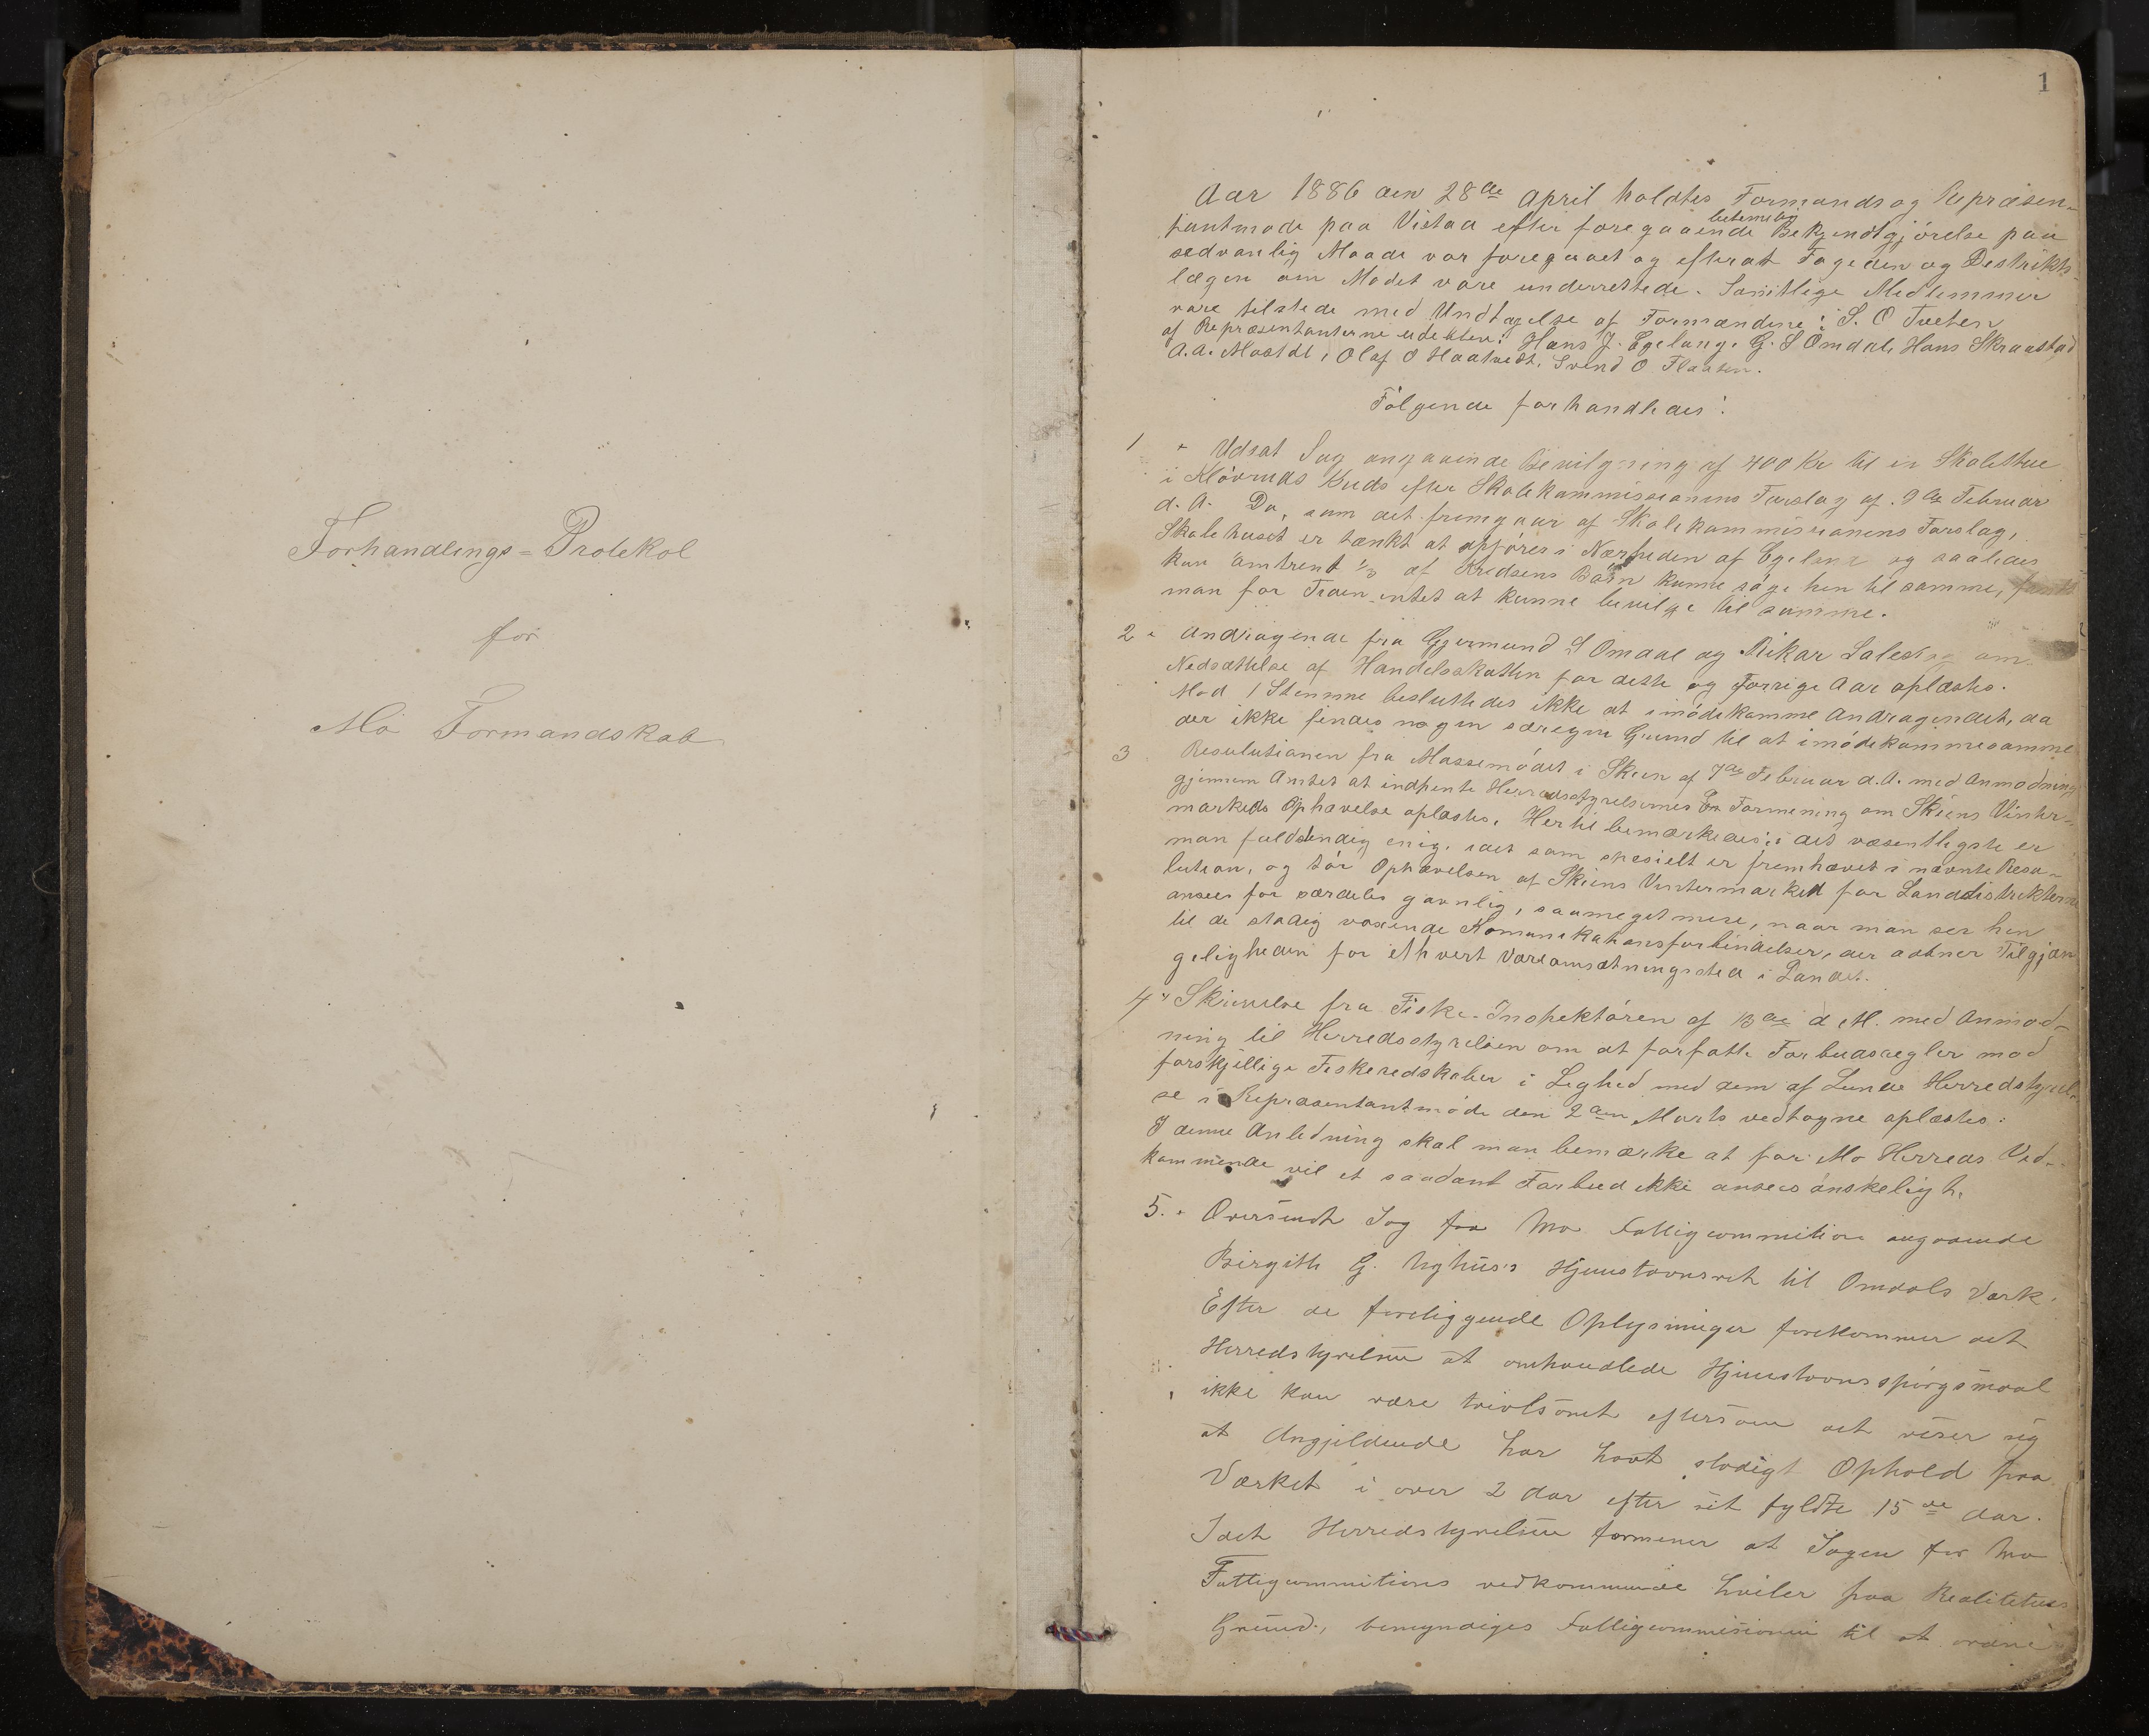 Forhandlings=Protokol
for
Mo Formandskab
1
Aar 1886 den 28de April holdtes Formands og Repræsen-
tantmøde paa Vistad efter foregaaende Bekjendtgjørelse paa
sædvanlig Maade var foregaaet og efterat Fogeden og Destrikts-
lægen om Mødet vare underrettede. Samtlige Medlemmer
vare tilstede med Undtagelse af Formændene: S. O Tveten
af Repræsentanterne udebleve: Hans J. Egeland, G. S Omdal, Hans Skraastad
A.A. Olaf O Haatvedt, Svend O. Flaaten.
Følgende forhandledes:
1 Udsat Sag angaaende Bevilgning af 400 Kr til en Skolestue
i Kløvruds Kreds efter Skolekommissionens Forslag af 9de Februar
d. A. Da, som det fremgaar af Skolekommissionens Forslag,
Skolehuset er tænkt at opføres i Nærheden af Egeland og saaledes
kun omtrent 1/3 af Kredsens Børn kunne søge hen til samme, fandt
man for Tiden intet at kunne bevilge til samme.
2 Andragende fra Gjermund S Omdal og Rikar om
Nedsættelse af Handelsskatten for dette og forrige Aar oplæstes.
Mod 1 Stemme besluttedes ikke at imødekomme Andragendet, da
der ikke findes nogen særegen Grund til at imødekomme samme
3 Resolutionen fra Massemødet i Skien af 7de Februar d.A. med Anmodning
gjennem Amtet at indhente Herredsstyrelsernes Formening om Skiens Vinter-
markeds Ophævelse oplæstes. Hertil bemærkedes: i det væsentligste er
man fuldstendig enig i det som spesielt er fremhævet i nævnte Reso-
lution, og tør Ophævelsen af Skiens Vintermarked for Landdistrikterne
ansees for særdeles gavnlig, saameget mere, naar man ser hen
til de stadig voxende Komunikationsforbindelser, der aabner Tilgjæn
geligheden for ethvert Vareomsætningssted i Landet.
4 Skrivelse fra Fiske-Inspektøren af 13de d. M. med Anmod-
ning til Herredsstyrelsen om at forfatte Forbudsregler mod
forskjellige Fiskeredskaber i Lighed med dem af Lunde Herredstyrel-
se i Repræsentantmøde den 2den Marts vedtagne oplæstes:
I denne Anledning skal man bemærke at for Mo Herreds Ved-
kommende vil et saadant Forbud ikke ansees ønskeligt.
5. Oversendt Sag fra Mo Fattigcommition angaaende
Birgith G. Nyhus's Hjemstavnsret til Omdals Værk.
Efter de foreliggende Oplysninger forekommer det
Herredstyrelsen at omhandlede Hjemstavnsspørgsmaal
ikke kan være tvivlsomt eftersom det viser sig
at Angjeldende har havt stadigt Ophold paa
Værket i over 2 Aar efter sit fyldte 15de Aar.
Idet Herredstyrelsen formener at Sagen for Mo
Fattigcommitions vedkommende hviler paa Realitetens
Grund, bemyndiges Fattigcommisionen til at ordne